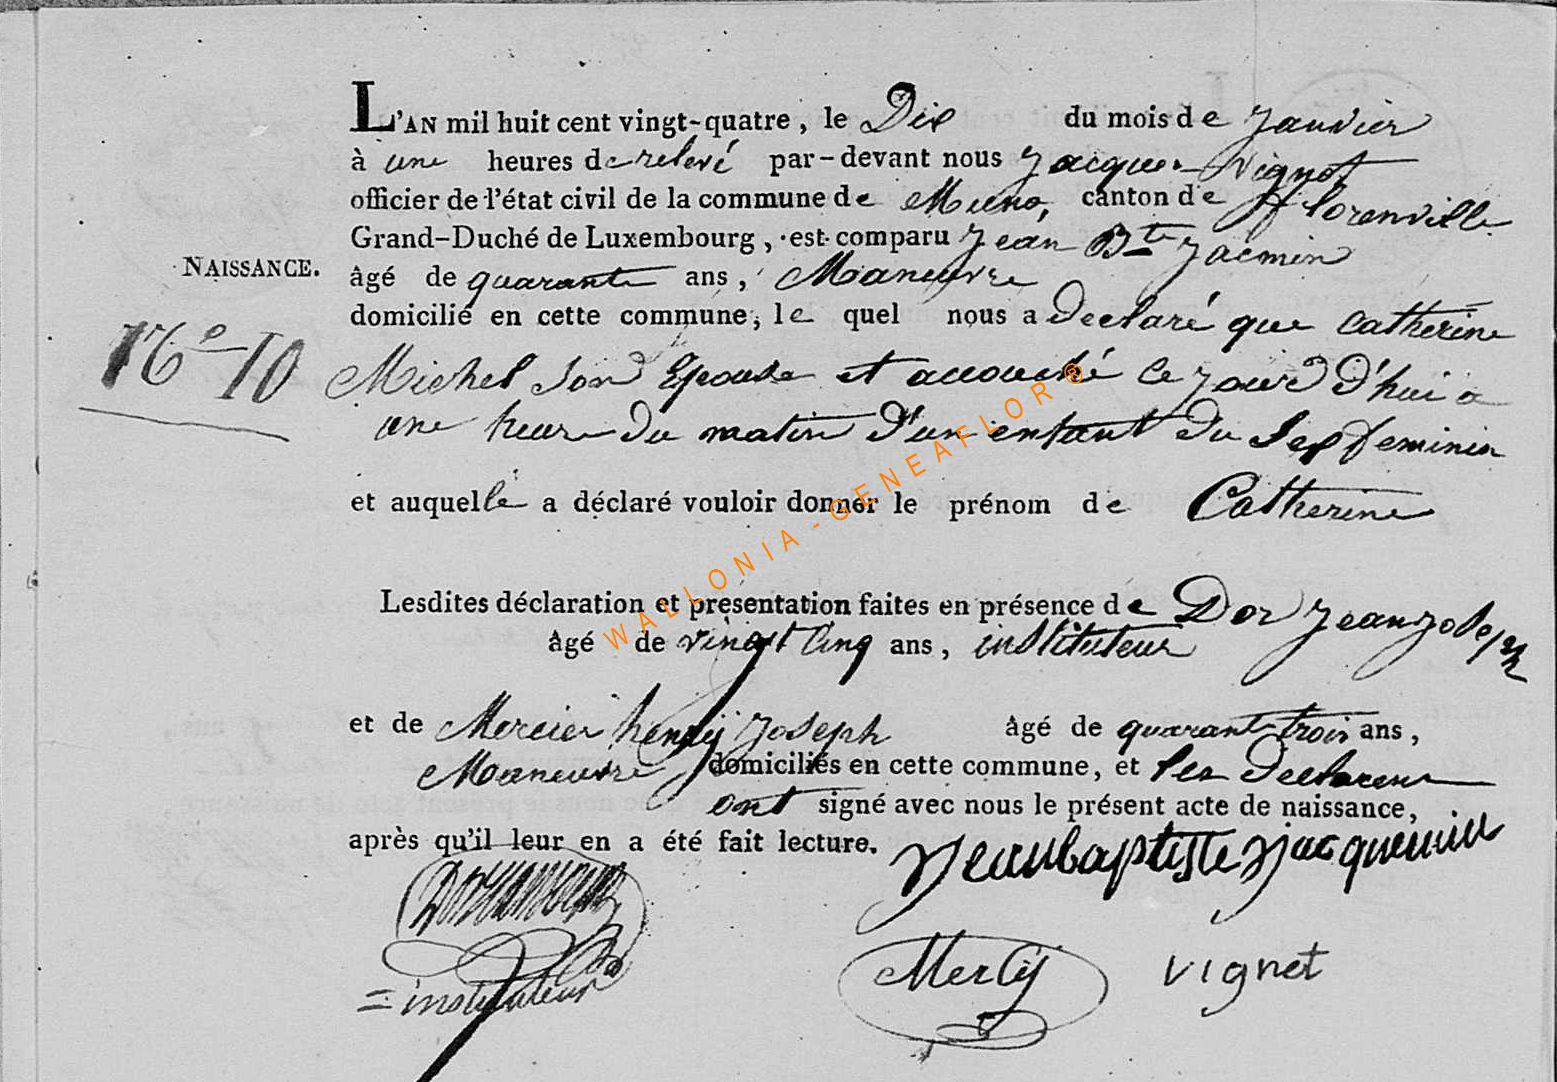 L'AN mil huit cent vingt-quatre, le Dix du mois de Janvier
à une heures de relevé par-devant nous Jacques Vignet
officier de l'état civil de la commune de Muno, canton de fflorenville
Grand-Duché de Luxembourg, est comparu Jean Bte Jacmin
NAISSANCE.
âgé de quarante ans, Maneuvre
domicilié en cette commune, le quel nous a Declaré que Catherine
No 10
Michel Son Epouse et accouché Ce Jourd d'hui a
une heure du matin d'un enfant du Sex feminin
et auquelle a déclaré vouloir donner le prénom de Catherine
WALLONIA-GENEAFLOR®
Lesdites déclaration et présentation faites en présence de Dor Jean Joseph
âgé de vingt Cinq ans, instituteur
et de Mercier henry Joseph âgé de quarant trois ans,
Maneuvre domiciliés en cette commune, et les Declareur
ont signé avec nous le présent acte de naissance,
après qu'il leur en a été fait lecture.
Jeanbaptiste Jacquemin
= instituteur
Vignet